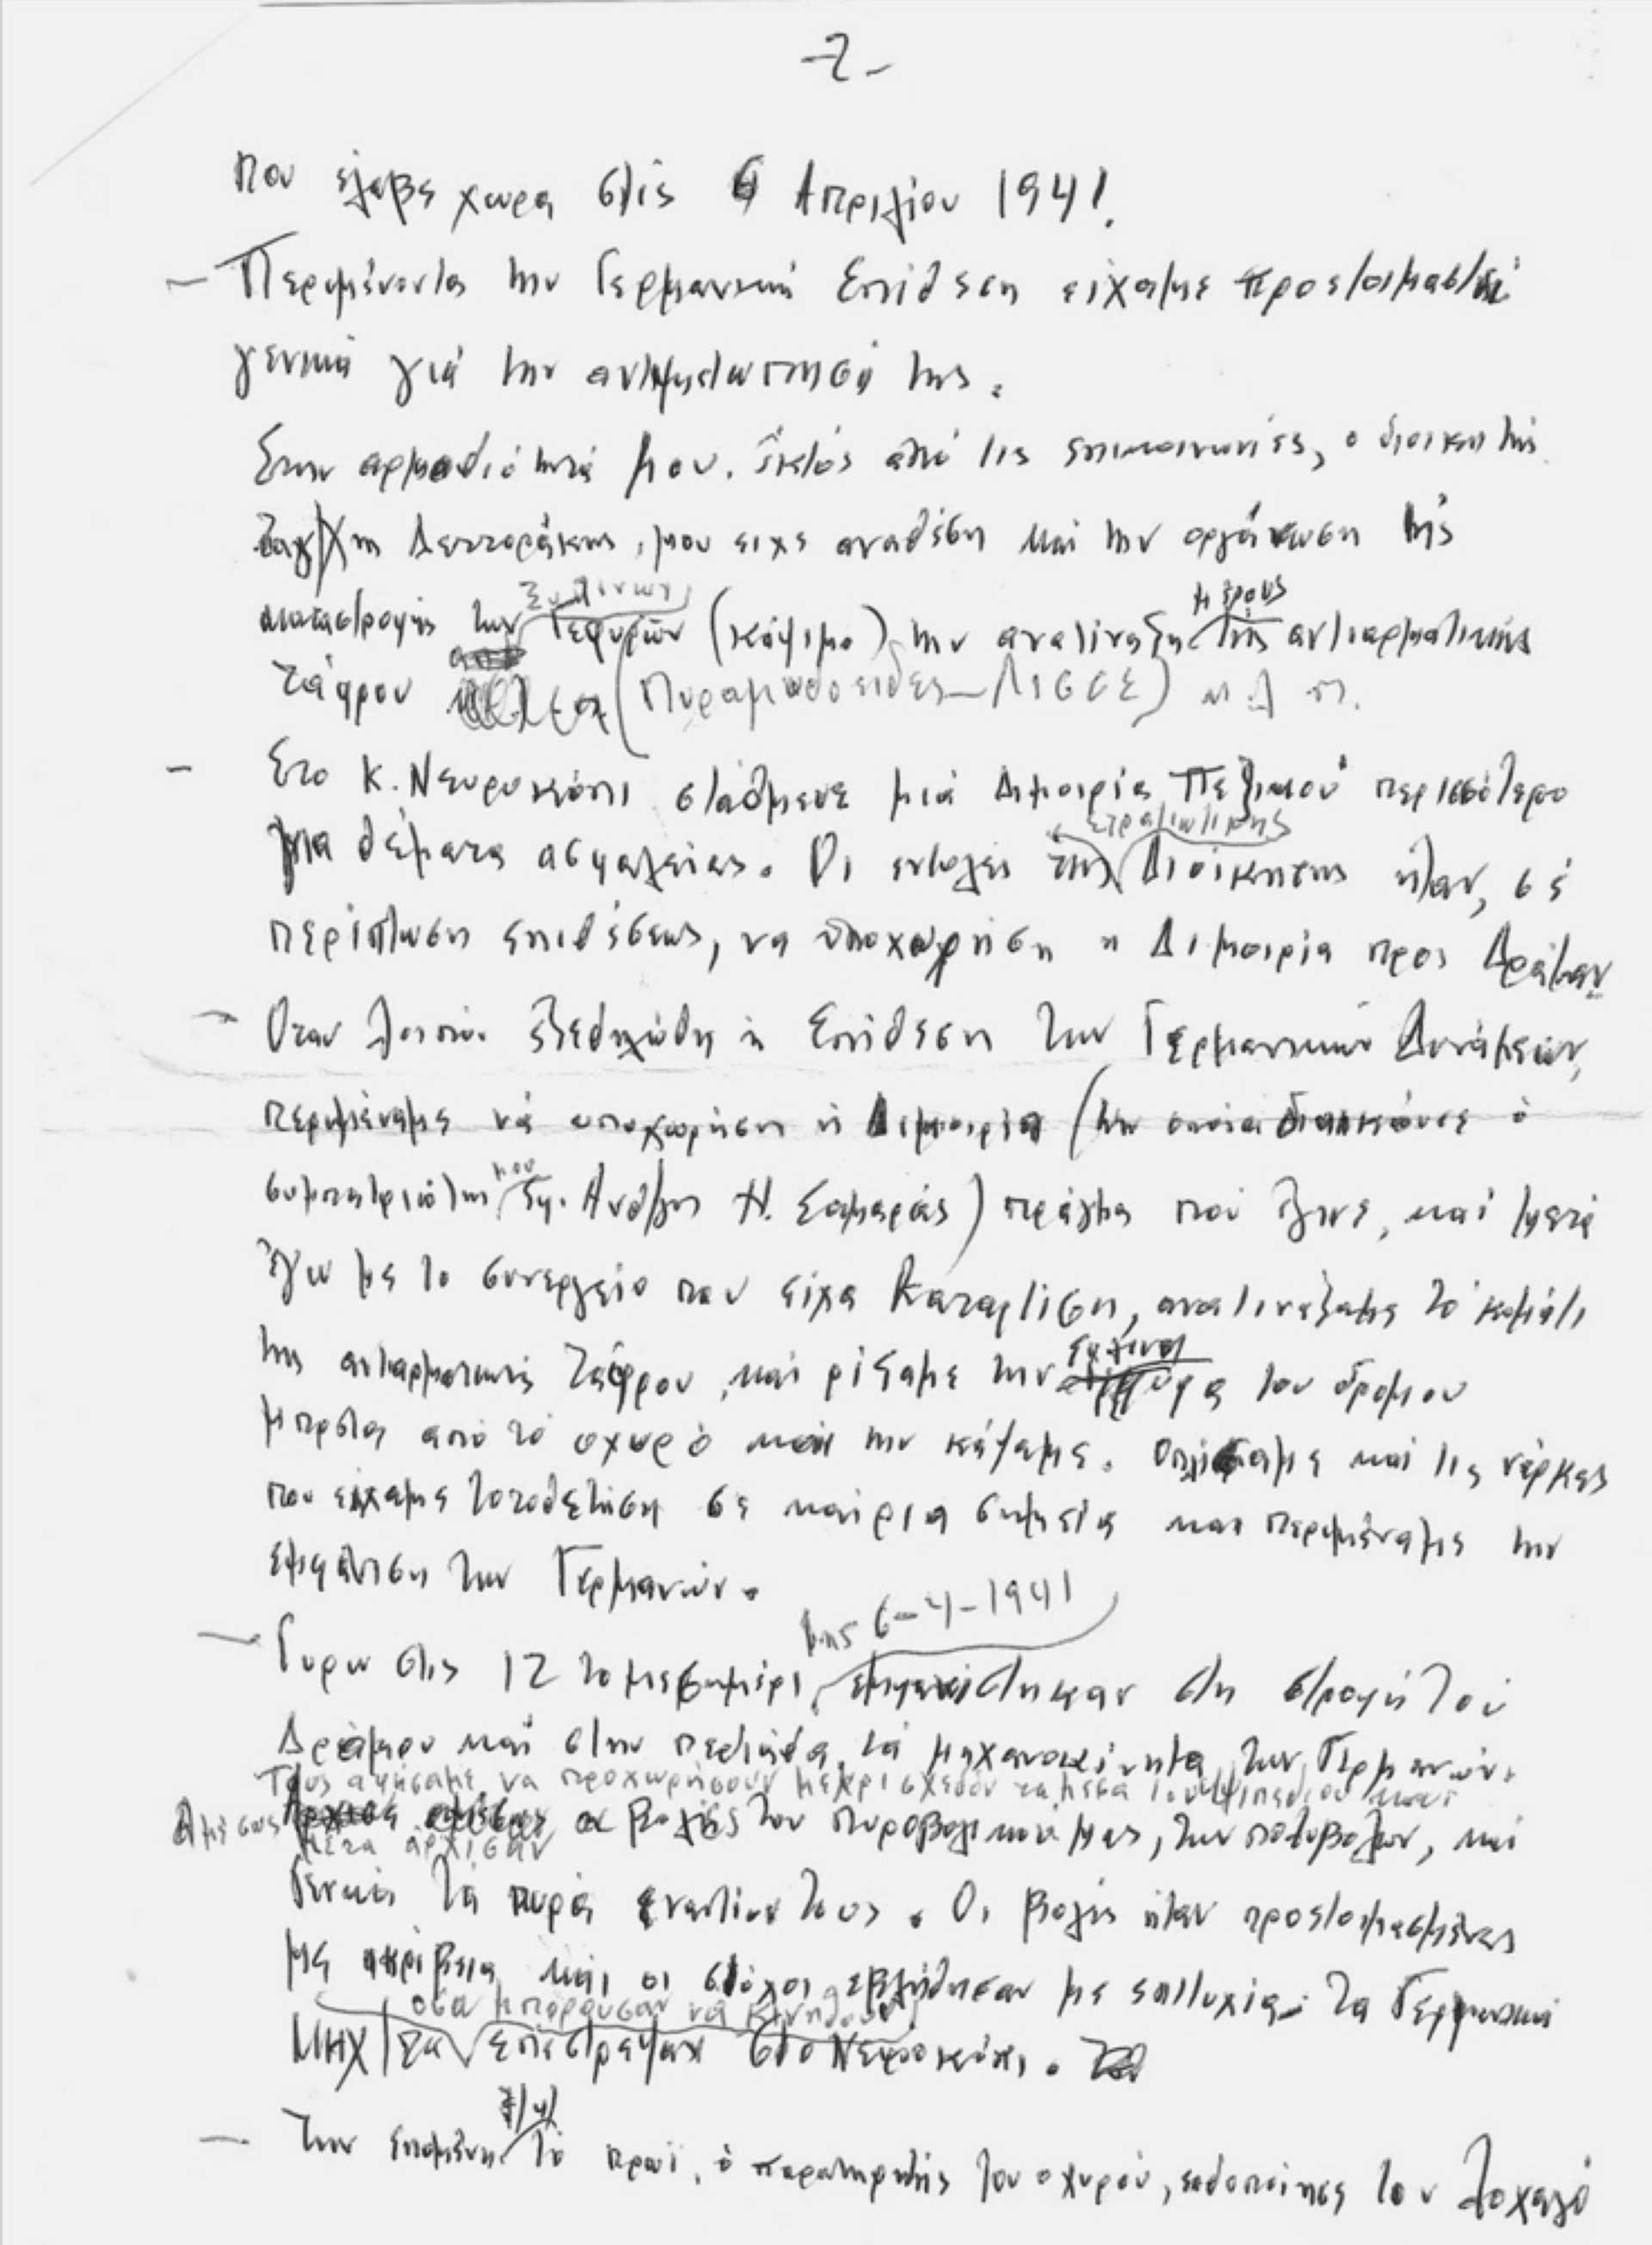 -2-
που έλαβε χωρα στίς 6 Απριλίου 1941.
— Περιμένοντας την Γερμανική Επίθεση είχαμε προετοιμαστεί
γενικά γιά την αντιμετωπησή της.
Στην αρμοδιότητά μου. Έκτός από τις επικοινωνίες, ο διοικητής
Ταγ/χης Δετοράκης, μου ειχε αναθέση και την οργάνωση τής
καταστροφής των ξυλίνων Γεφυρών (κάψιμο) την ανατίναξη μέρους τής αντιαρματικής
τάφρου (Πυραμιδοειδές — ΛΙΣΣΕ) κ.λ.π.
— Στο Κ. Νευροκόπι στάθμευε μιά Διμοιρία Πεζικού περισσότερο
για θέματα ασφαλείας. Οι εντολές της Στρατιωτικής Διοίκησης ήταν, σέ
περίπτωση επιθέσεως, να υποχωρήση η Διμοιρία προς Δράμαν
— Οταν λοιπόν εξεδηλώθη η Επίθεση των Γερμανικών Δυνάμεων,
περιμέναμε νά υποχωρήση ή Διμοιρία (την οποία διοικούσε ό
συμπατριώτης μου Εφ. Ανθ/γος Η. Σαμαράς) πράγμα πού έγινε, και μετά
έγω με το συνεργείο που είχα καταρτίση, ανατινάξαμε τό κομάτι
της αντιαρματικής τάφρου, και ρίξαμε την ξύλινη γέφυρα του δρόμου
μπροστα από τό οχυρό και την κάψαμε. Οπλίσαμε και τις νάρκες
που είχαμε τοποθετήση σε καίρια σημεία και περιμέναμε την
εμφάνιση των Γερμανών.
— Γυρω στις 12 το μεσημέρι, της 6-4-1941 εμφανίστηκαν στη στροφή τού
Δρόμου και στην πεδιάδα, τά μηχανοκίνητα των Γερμανών.
Τους αφήσαμε να προχωρήσουν μέχρι σχεδόν τα μέσα του υψιπέδιου και
Αμέσως μετα άρχισαν οι βολές του πυροβολικού μας, των πολυβόλων, και
Γενικά τά πυρά εναντίον τους. Οι βολές ήταν προετοιμασμένες
με ακρίβεια και οι στόχοι εβλήθησαν με επιτυχία. Τα Γερμανικά
ΜΗΧ/τα όσα μπορούσαν νά κινηθούν επέστρεψαν στο Νευροκόπι.
— Την επομένη 7/4/ τό πρωί, ό παρατηρητής του οχυρού, ειδοποίησε τον Λοχαγό